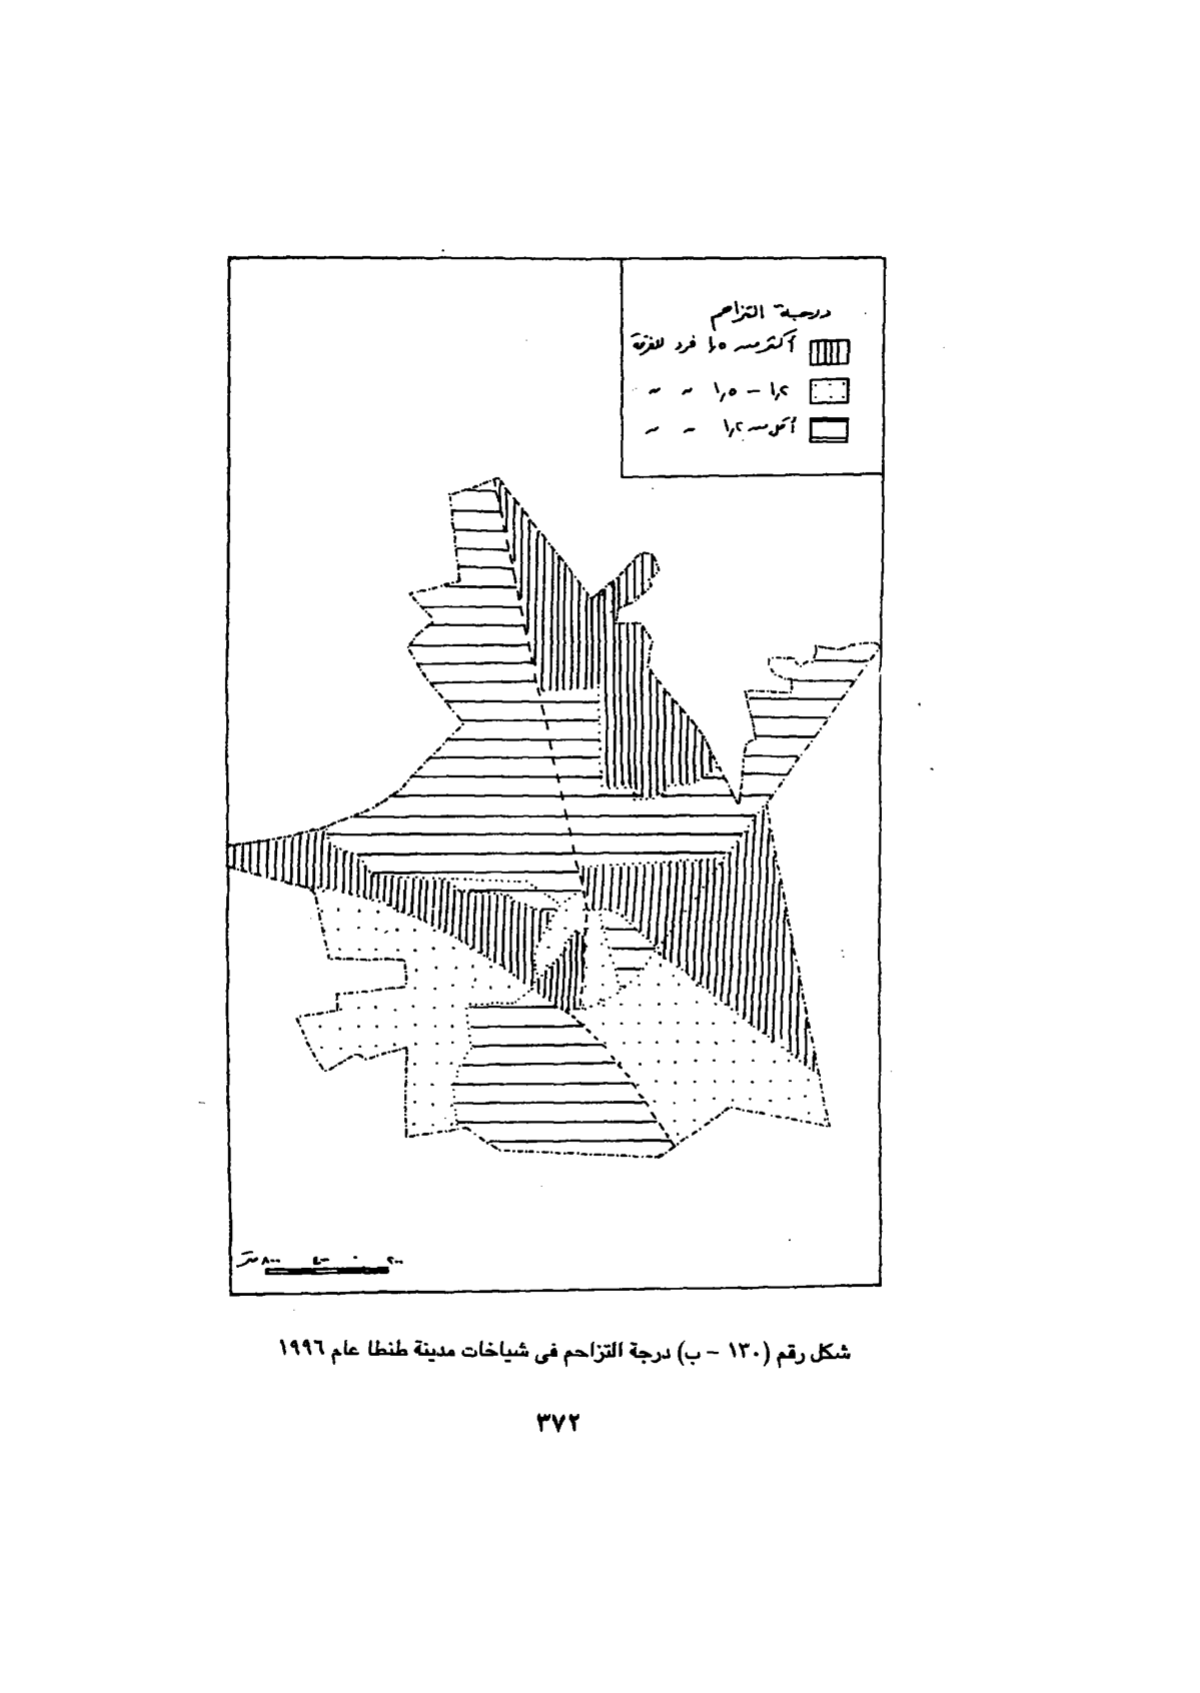 درجة التزاحم
أكثر من ١,٥ فرد للغرفة
١,٢ – ١,٥ 〃 〃
أقل من ١,٢ 〃 〃
٨٠٠ متر ٤٠٠ ٠ ٢٠٠
شكل رقم (١٣٠ – ب) درجة التزاحم فى شياخات مدينة طنطا عام ١٩٩٦
٣٧٢